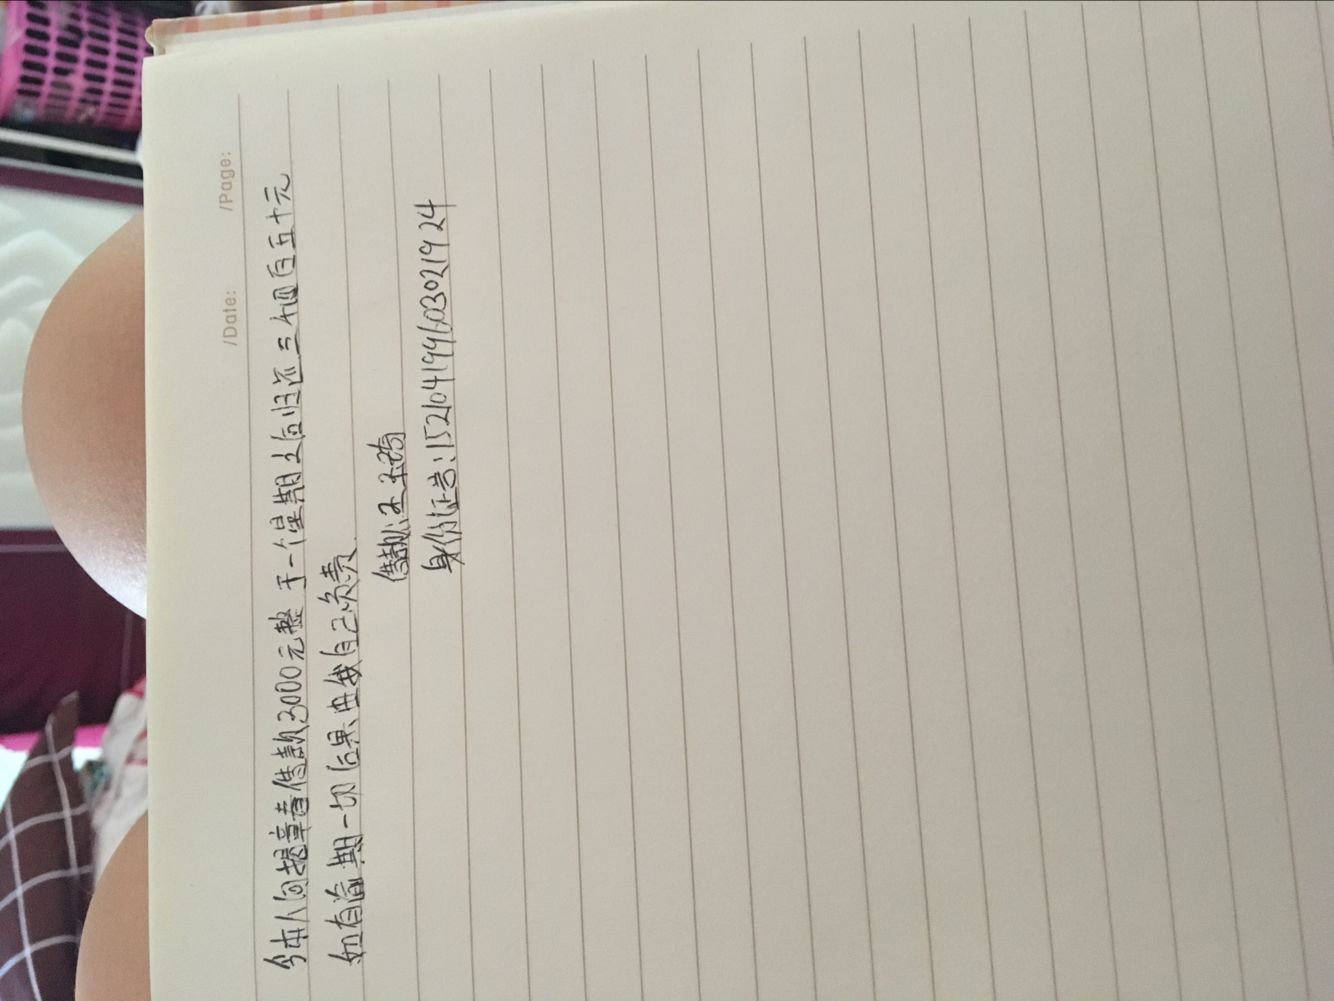 /Date: /Page:
今本人向 借款3000元整 于一个星期之后归还三千四百五十元
如有逾期一切后果由我自己负责.
借款人:王
身份证号:152104199603021924